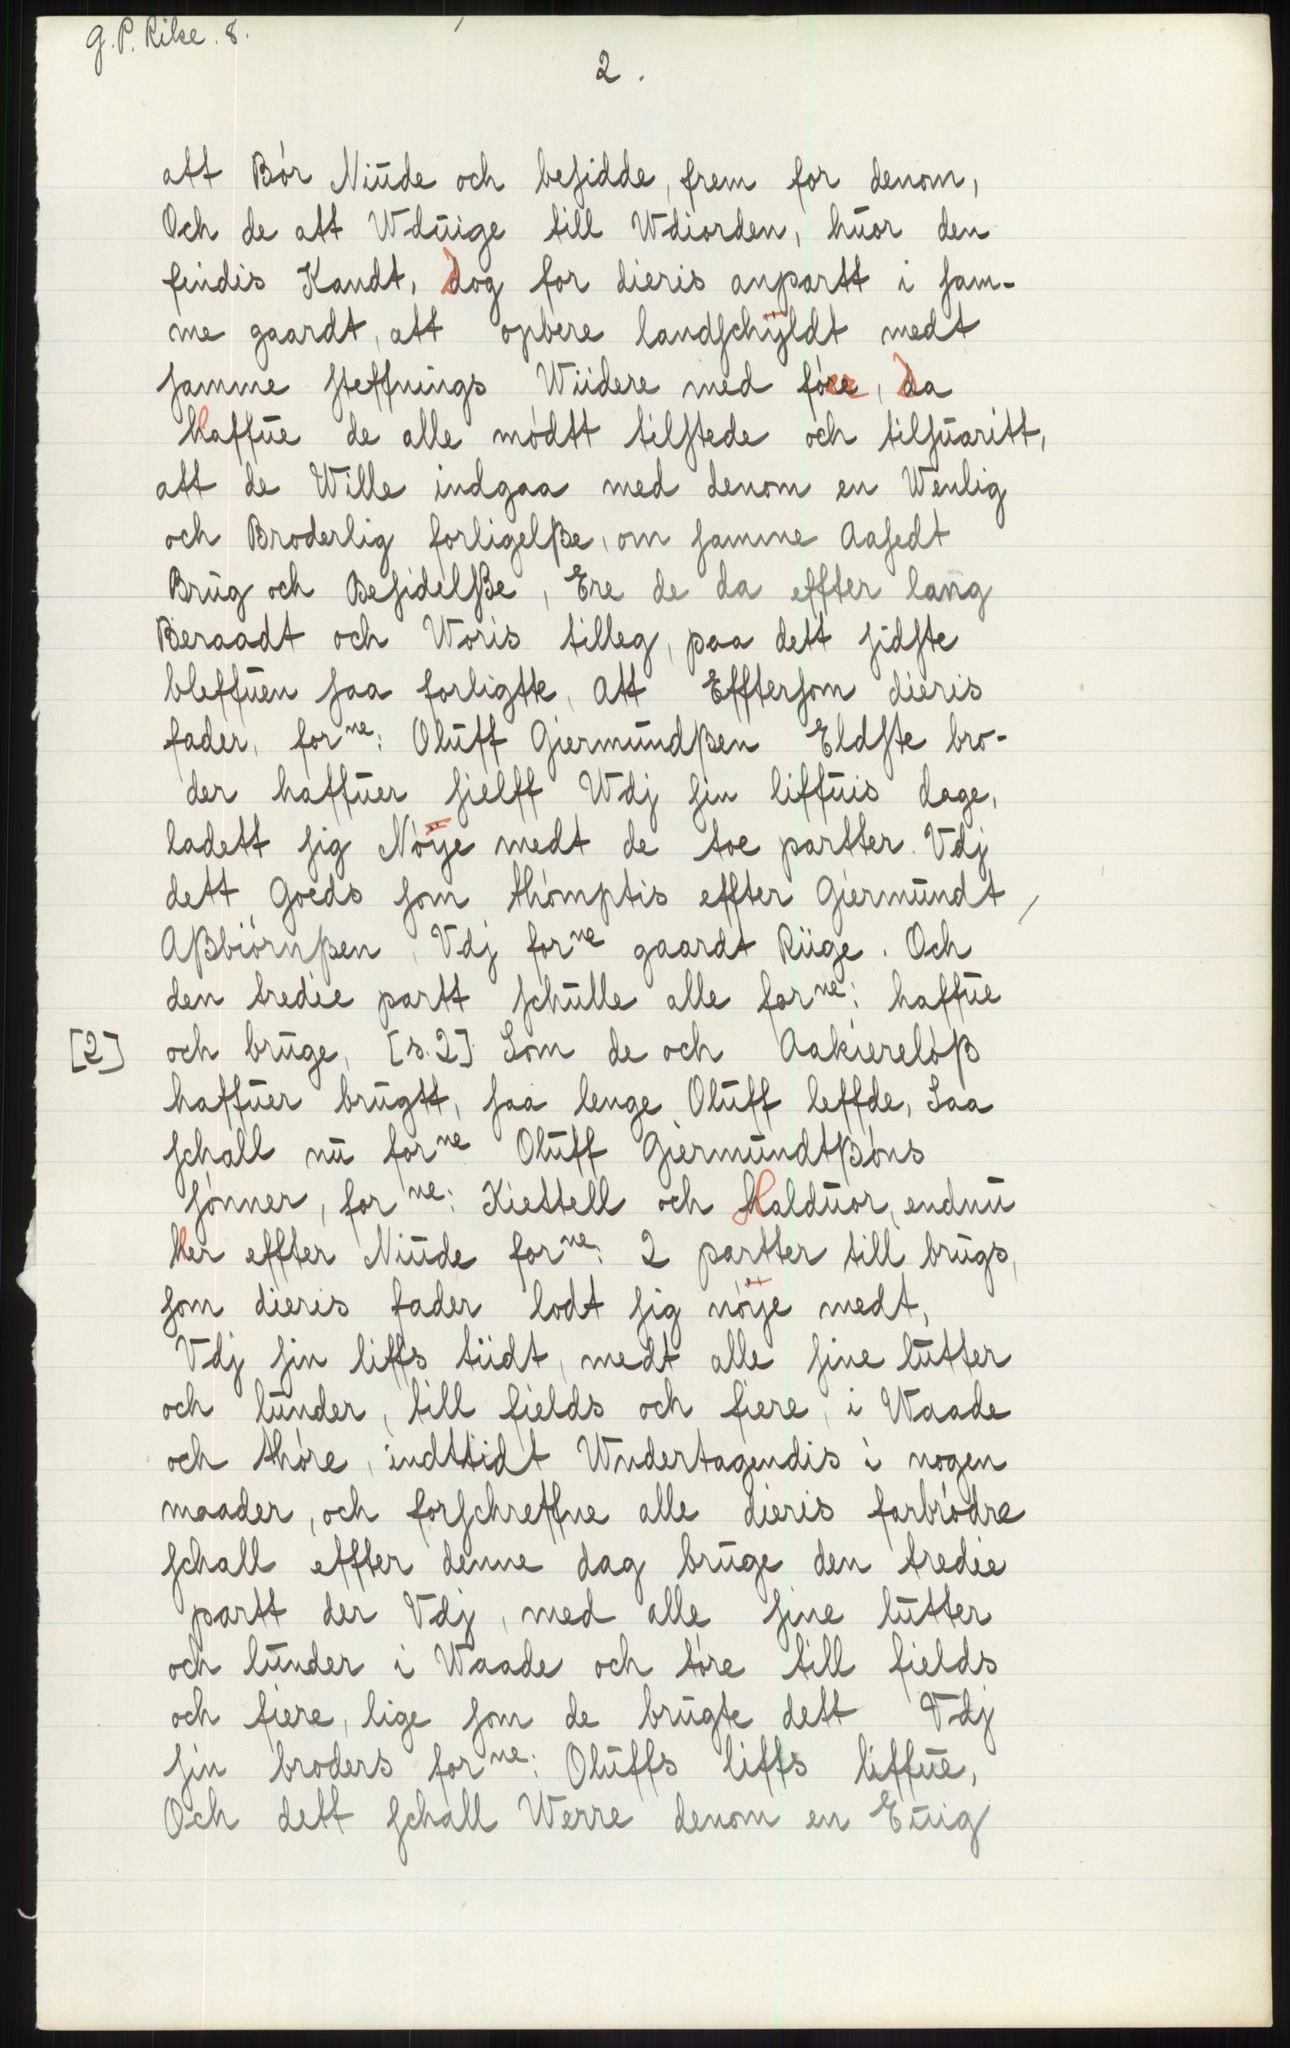 G. P. Rike. 8.
2.
att Bör Niude och besidde, frem for denom,
Och de att Wduige till Wdiorden, huor den
findis Kandt, dog for dieris anpartt i sam-
me gaardt, att opbere landschÿldt medt
samme steffnings Wiidere med före, da
Haffue de alle mödtt tilstede och tilsuaritt,
att de Wille indgaa med denom en Wenlig
och Broderlig forligelße, om samme Aasedt
Brug och Besidelße, Ere de da effter lang
Beraadt och Woris tilleg, paa dett sidste
bleffuen saa forligtte, Att Efftersom dieris
fader, forne: Oluff Giermundßen Eldste bro-
der haffuer sielff Wdj sin liffuis dage,
ladett sig Nöÿe medt de toe partter. Vdj
dett Goeds som thömptis effter Giermundt /
Aßbiörnßen, Vdj forne gaardt Riige. Och
den tredie partt schulle alle forne: haffue
[2] och bruge, [s. 2] Som de och Aakierelöß
haffuer brugtt, saa lenge Oluff leffde, Saa
schall nu forne Oluff Giermundtßöns
sönner, forne: Kiettell och Halduor, endnu
Her effter Niude forne: 2 partter till brugs,
som dieris fader lodt sig nöÿe medt,
Vdj sin liffs tiidt, medt alle sine lutter
och lunder, till fields och fiere, i Waade
och thöre, indttidt Wndertagendis i nogen
maader, och forschreffne alle dieris farbrödre
schall effter denne dag bruge den tredie
partt der Vdj, med alle sine lutter
och lunder i Waade och töre till fields
och fiere, lige som de brugte dett Vdj
sin broders forne: Oluffs liffs liffue,
Och dett schall Werre denom en Euig